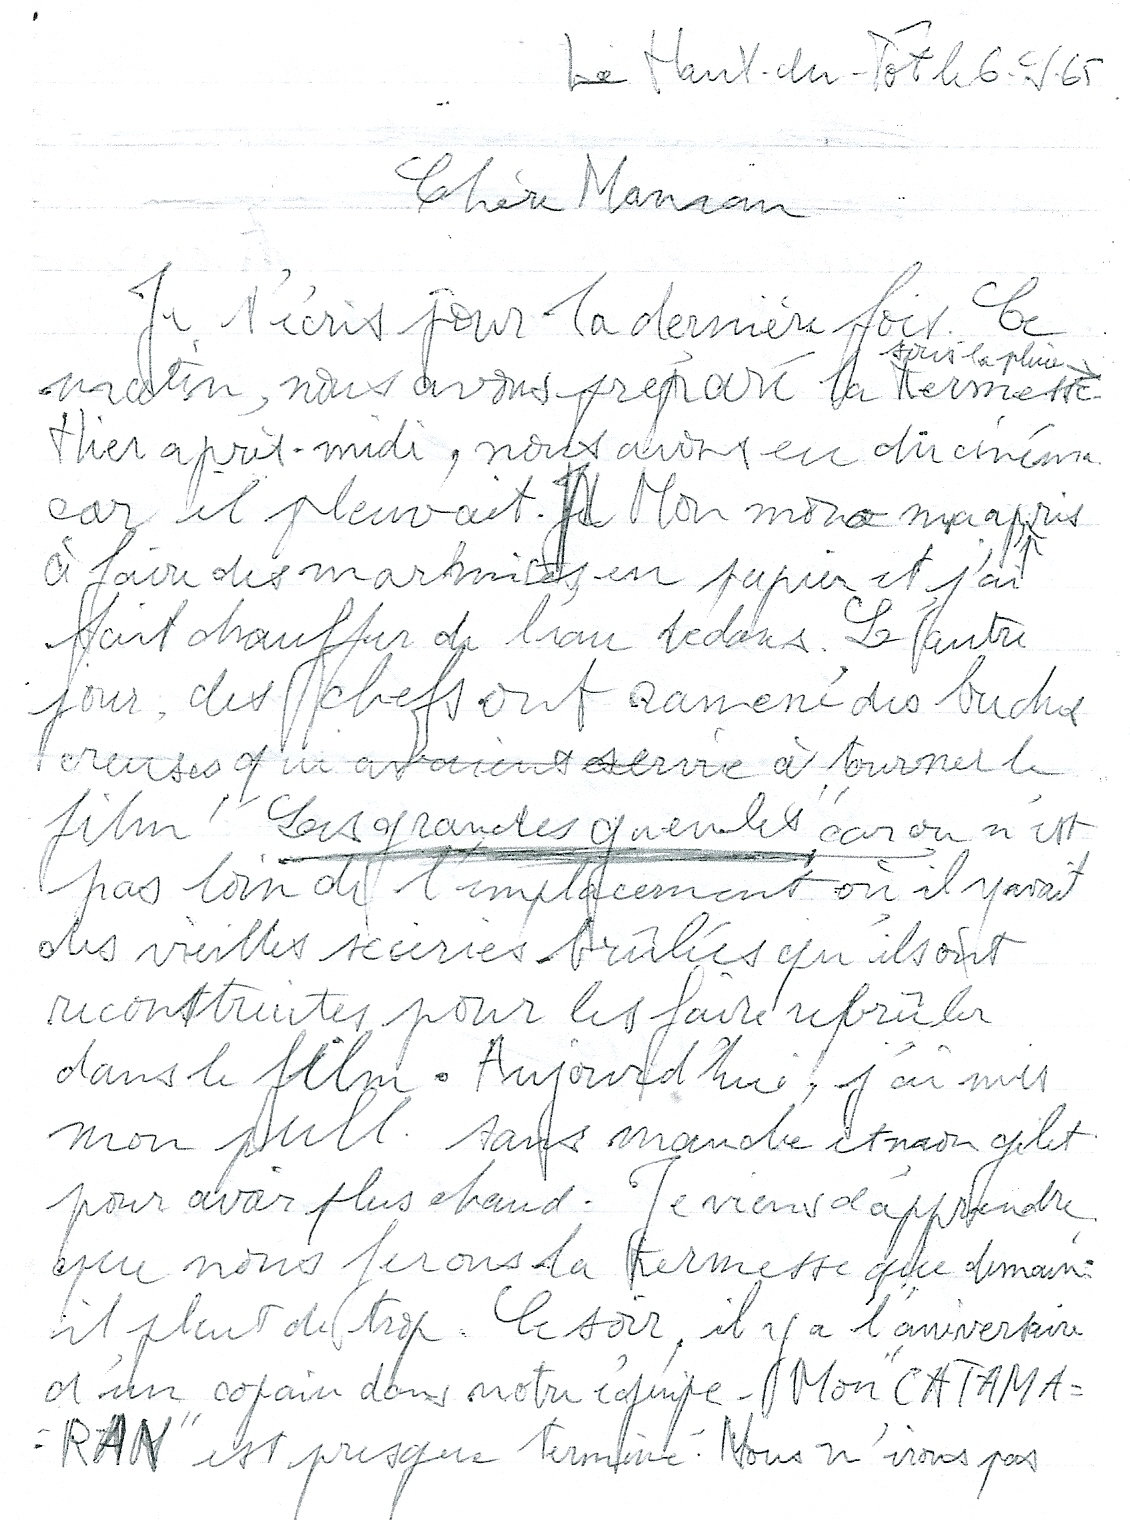 Le Haut-du-Tôt le 6-    -65
Chère Maman
Je t'écris pour la dernière fois. Ce
sous la pluie →
matin, nous avons préparé la kermesse
Hier après-midi, nous avons eu du cinéma
car il pleuvait. Mon mono m'a appris
à faire des marmites en papier et j'ai
fait chauffer de l'eau dedans. L'autre
jour, des chefs ont ramené des buches
creuses qui avaient servie à tourner le
film "Les grandes gueules" car on n'est
pas loin de l'emplacement où il y avait
des vieilles scieries brûlées qu'ils ont
reconstruites pour les faire rebrûler
dans le film. Aujourd'hui, j'ai mis
mon pull sans manche et mon gilet
pour avoir plus chaud. Je viens d'apprendre
que nous ferons la kermesse que demain:
il pleut de trop. Ce soir, il y a l'aniversaire
d'un copain dans notre équipe. Mon "CATAMA=
=RAN" est presque terminé. Nous n'irons pas